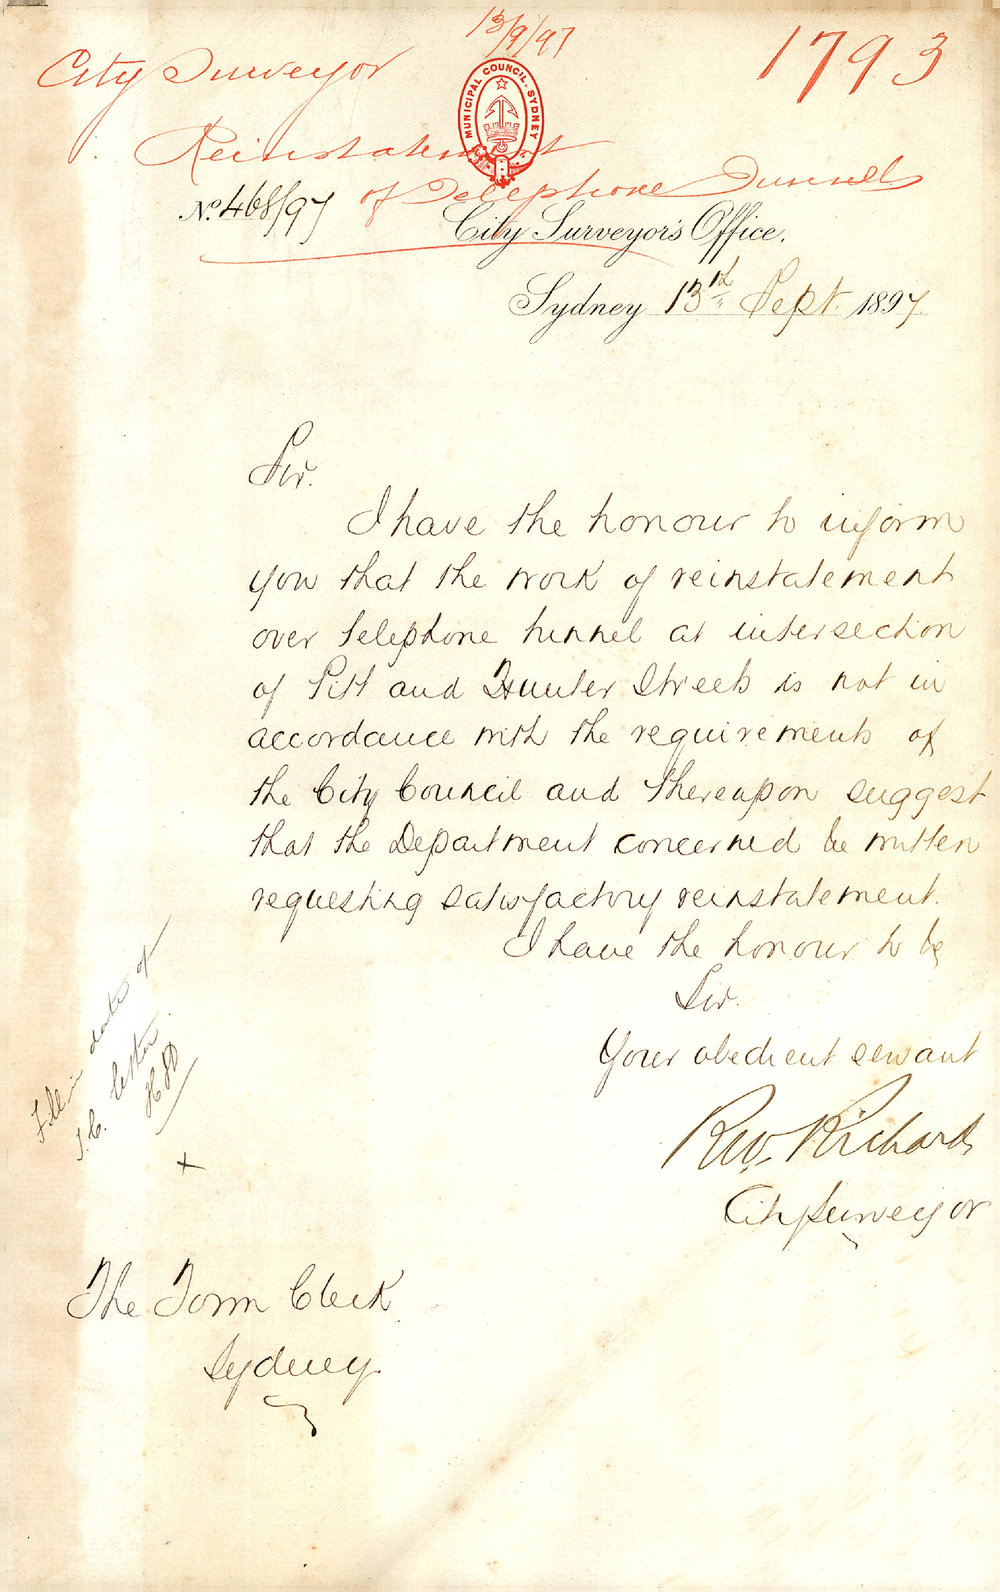 13/9/97
1793
City Surveyor
MUNICIPAL COUNCIL. SYDNEY
Reinstatement
of Telephone Tunnel
No. 468/97
City Surveyor's Office.
Sydney 13th Sept. 1897
Sir.
I have the honour to inform
you that the work of reinstatement
over telephone tunnel at intersection
of Pitt and Hunter Streets is not in
accordance with the requirements of
the City Council and thereupon suggest
that the Department concerned be written
requesting satisfactory reinstatement.
I have the honour to be
Sir.
Your obedient servant
Richards
City Surveyor
date of
T.C. letter.
The Town Clerk
Sydney